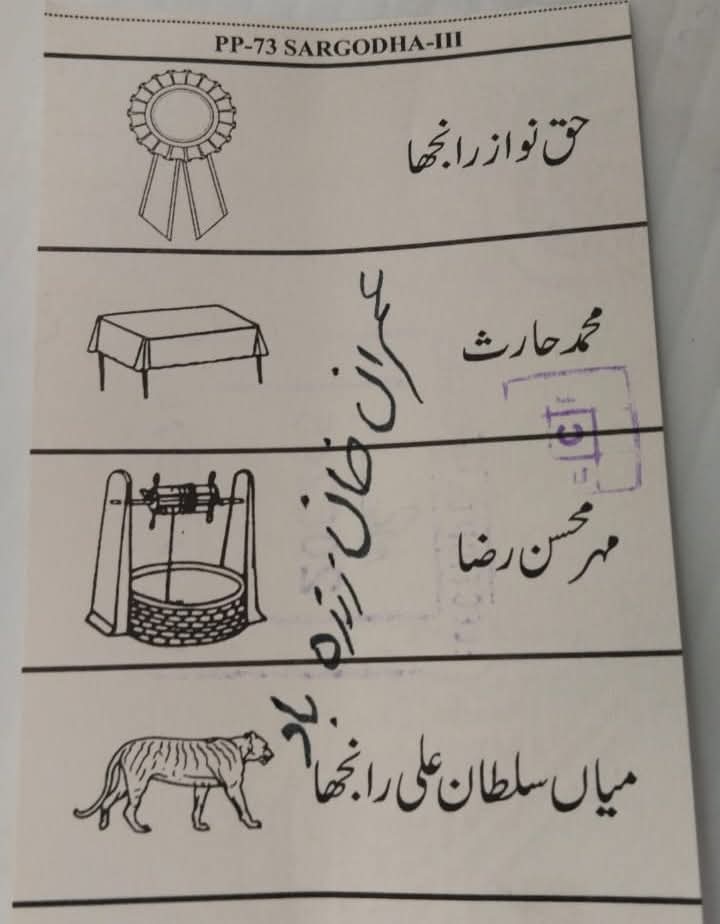 PP-73 SARGODHA-III
حق نواز رانجھا
محمد حارث
مہر محسن رضا
میاں سلطان علی رانجھا
عمران خان زندہ باد